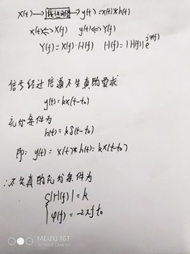 X(t) → 线性系统 → y(t) = x(t)*h(t)
x(t) ↔ X(f)  y(t) ↔ Y(f)
Y(f) = X(f)·H(f)  H(f) = |H(f)| e^{jφ(f)}
信号经过信道不失真的要求
y(t) = kx(t-t₀)
充分条件为
h(t) = kδ(t-t₀)
即: y(t) = x(t)*h(t) = kx(t-t₀)
∴ 不失真的充分条件为
{ |H(f)| = k
φ(f) = -2πf t₀